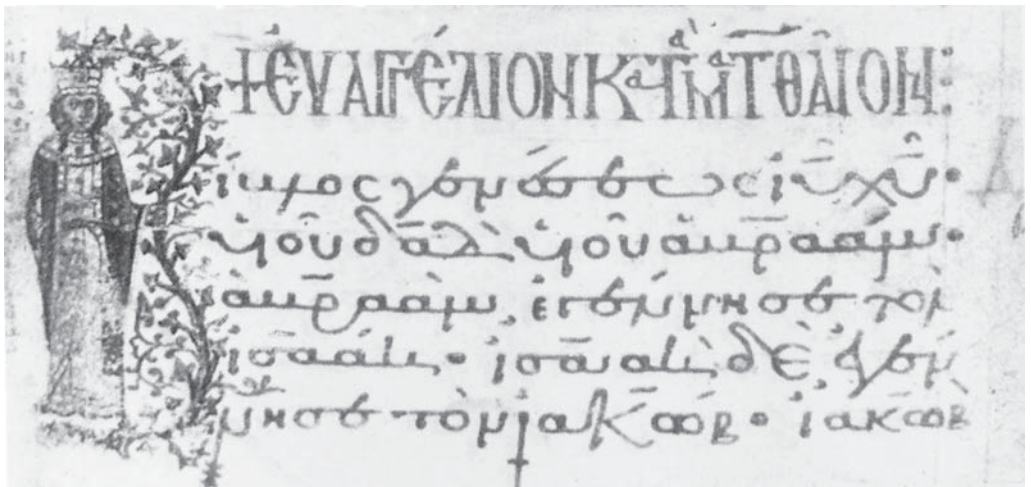 + ἐυαγγέλιον κατὰ ματθαῖον:
ίβλος γενέσεως ἰῦ χῦ·
ὑιοῦ δᾱδ ὑιοῦ ἀβρααάμ·
ἀβραὰμ ἐγέννησε τὸν
ισαάκ· ἰσαὰκ δὲ ἐγέν
νησε τὸν ἰακώβ· ἰακὼβ